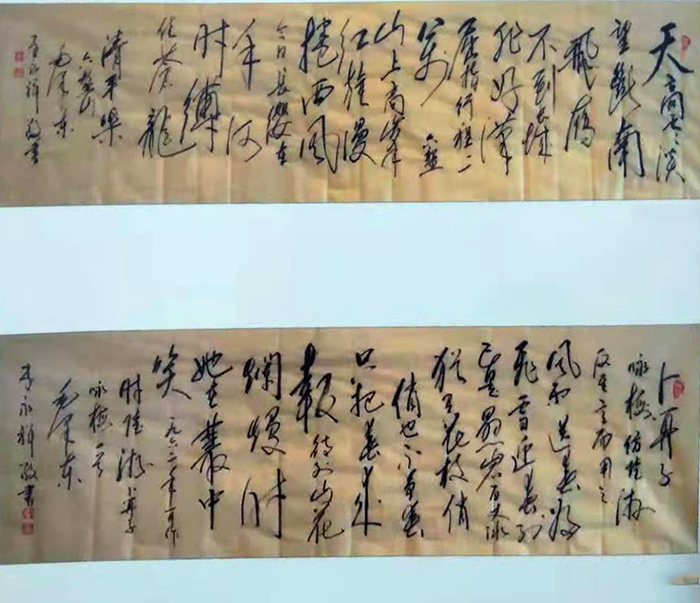 天高云淡
望断南
飞雁
不到长城
非好汉
屈指行程二
万 六盘
山上高峰
红旗漫
卷西风
今日长缨在
手何
时缚
住苍龙
清平乐
六盘山
毛泽东
李永祥敬书
卜算子
咏梅 仿陆游
反其意而用之
风雨送春归
飞雪迎春到
已是悬崖百丈冰
犹有花枝俏
俏也不争春
只把春来
报 待到山花
烂漫时
她在丛中
笑 一九六一年十二月作
时陆游卜算子
咏梅一首
毛泽东
李永祥敬书